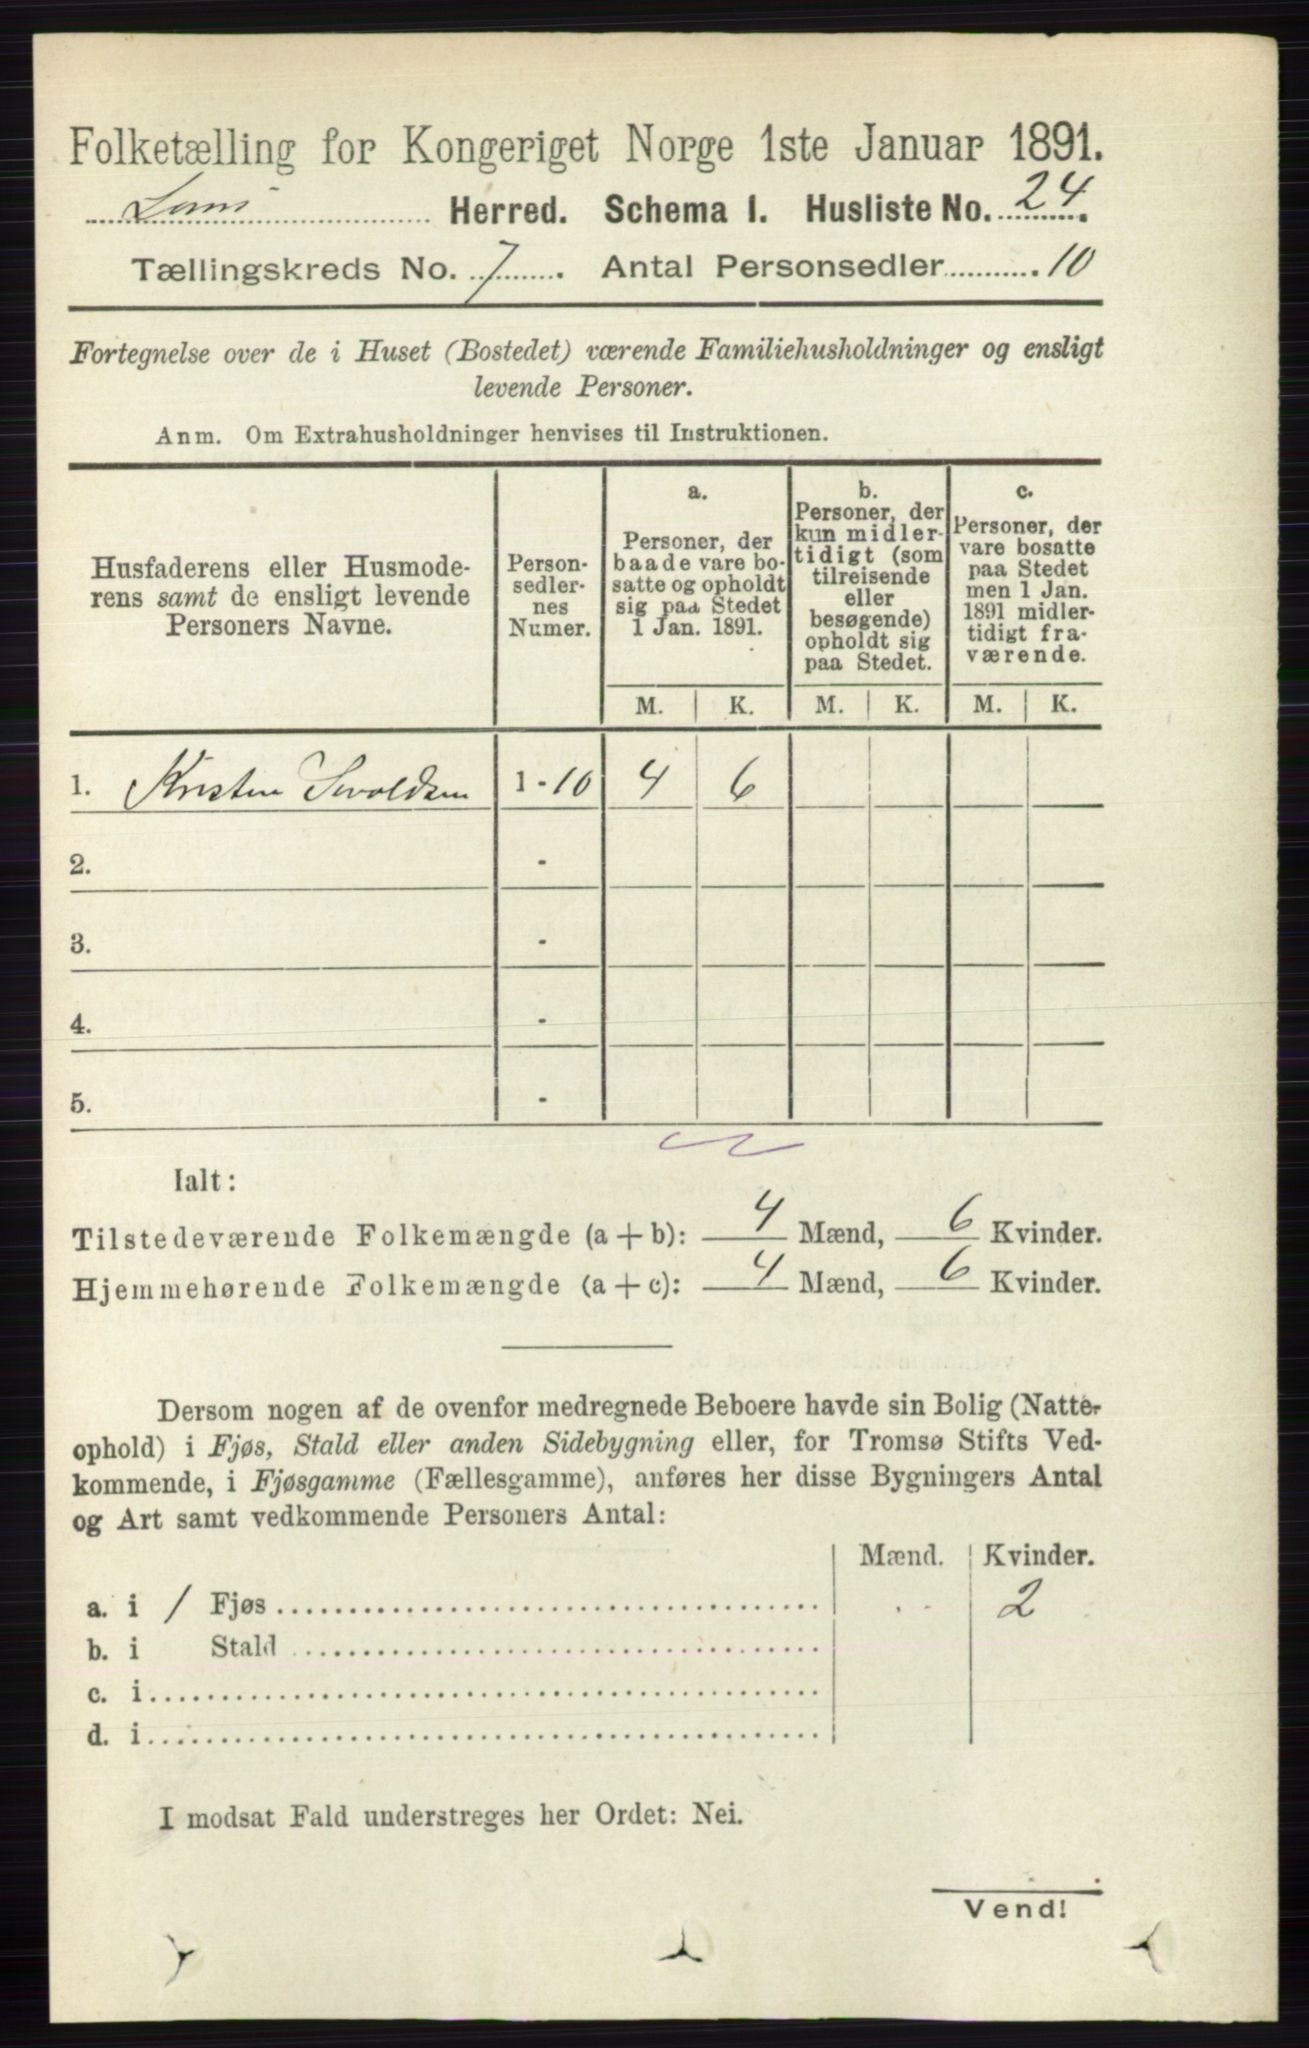 Folketælling for Kongeriget Norge 1ste Januar 1891.
Lom Herred. Schema I. Husliste No. 24.
Tællingskreds No. 7. Antal Personsedler 10
Fortegnelse over de i Huset (Bostedet) værende Familiehusholdninger og ensligt
levende Personer.
Anm. Om Extrahusholdninger henvises til Instruktionen.
Husfaderens eller Husmode-
rens samt de ensligt levende
Personers Navne.
Person-
sedler-
nes
Numer.
a.
Personer, der
baade vare bo-
satte og opholdt
sig paa Stedet
1 Jan. 1891.
b.
Personer, der
kun midler-
tidigt (som
tilreisende
eller
besøgende)
opholdt sig
paa Stedet.
c.
Personer, der
vare bosatte
paa Stedet
men 1 Jan.
1891 midler-
tidigt fra-
værende.
M. K. M. K. M. K.
1. Kristen 1 - 10 4 6
2. -
3. -
4. -
5. -
Ialt:
Tilstedeværende Folkemængde (a + b): 4 Mænd, 6 Kvinder.
Hjemmehørende Folkemængde (a + c): 4 Mænd, 6 Kvinder.
Dersom nogen af de ovenfor medregnede Beboere havde sin Bolig (Natte-
ophold) i Fjøs, Stald eller anden Sidebygning eller, for Tromsø Stifts Ved-
kommende, i Fjøsgamme (Fællesgamme), anføres her disse Bygningers Antal
og Art samt vedkommende Personers Antal:
Mænd. Kvinder.
a. i 1 Fjøs 2
b. i Stald
c. i
d. i
I modsat Fald understreges her Ordet: Nei.
Vend!